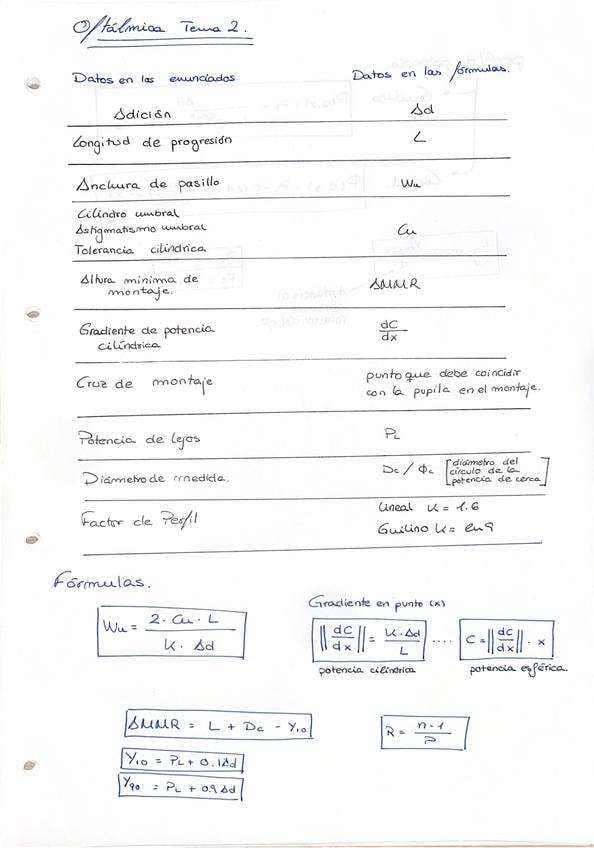 Oftálmica Tema 2.
Datos en los enunciados
Datos en las fórmulas.
Adición
Ad
Longitud de progresión
L
Anchura de pasillo
Wu
Cilindro umbral
Astigmatismo umbral
Tolerancia cilíndrica
Cu
Altura mínima de
montaje.
AMMR
Gradiente de potencia
cilíndrica
dC
dx
Cruz de montaje
punto que debe coincidir
con la pupila en el montaje.
Potencia de lejos
PL
Diámetro de medida.
Dc / Φc [diámetro del
círculo de la
potencia de cerca]
Factor de Perfil
Lineal K = 1.6
Guilino K = ln 9
Fórmulas.
Wu = 2 · Cu · L / K · Ad
Gradiente en punto (x)
||dC/dx|| = K · Ad / L .... C = ||dC/dx|| · x
potencia cilíndrica
potencia esférica.
AMMR = L + Dc - Y10
R = n - 1 / P
Y10 = PL + 0.1Ad
Y90 = PL + 0.9 Ad